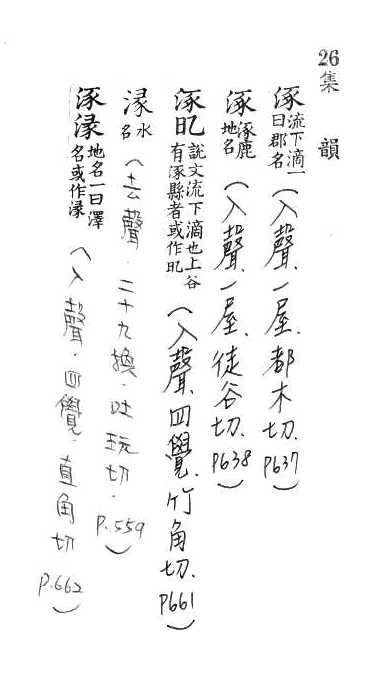 26 集韻
涿 流下滴一曰郡名(入聲.一屋.都木切.P637)
涿 涿鹿地名(入聲.一屋.徒谷切.P638)
涿㕡 說文流下滴也上谷有涿縣者或作㕡(入聲.四覺.竹角切.P661)
湪 水名(去聲.二十九換.吐玩切.P.559)
地名一曰澤名或作(入聲.四覺.直角切.P.662)